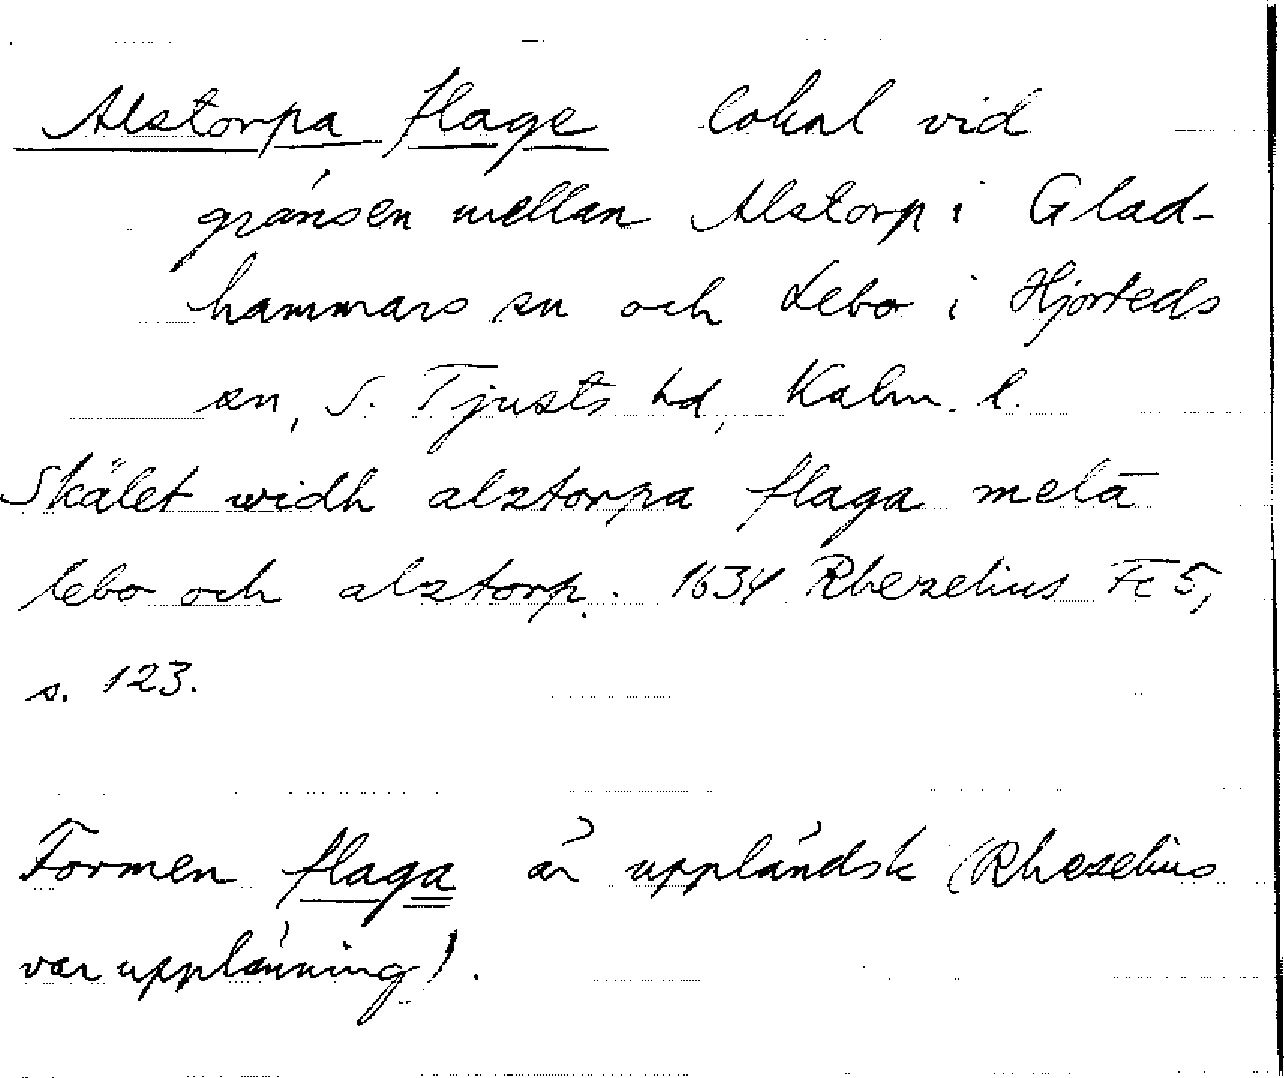 Alstorpa flage lokal vid
gränsen mellan Alstorp i Glad-
hammars sn och Lebo i Hjorteds
sn, S. Tjusts hd, Kalm. l.
Skälet widh alstorpa flaga melā
lebo och alstorp. 1634 Rhezelius Fc 5,
s. 123.
Formen flaga är uppländsk (Rhezelius
var upplänning).